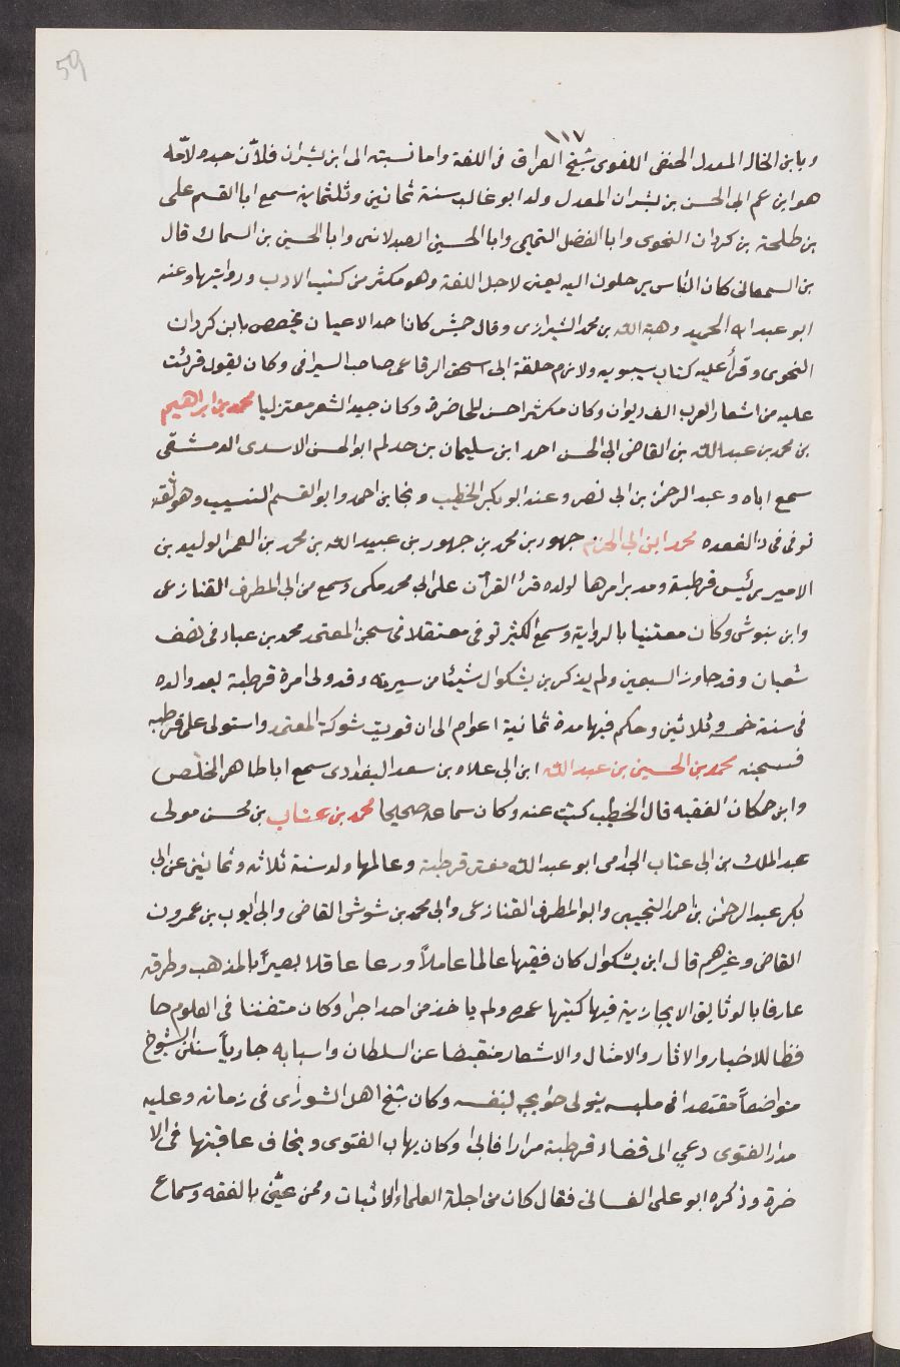 59
١١٧
وبابن الخال المعدل الحنفى اللغوى شيخ العراق فى اللغة واما نسبته الى ابن بشران فلأن جده لأمه
هو ابن عم ابى الحسن بن بشران المعدل ولد ابو غالب سنة ثمانين وثلثماية سمع ابا القسم على
بن طلحة بن كردان النحوى وابا الفضل التميمى وابا الحسين الصيدلانى وابا الحسين بن السماك قال
بن السمعانى كان الناس يرحلون اليه يعنى لاجل اللغة وهو مكثر من كتب الادب وروايتها وعنه
ابو عبد الله الحميد وهبة الله بن محمد الشيرازى وقال خميس كان احد الاعيان تخصص بابن كردان
النحوى وقرأ عليه كتاب سيبويه ولازم حلقة ابى اسحق الرفاعى صاحب السيرافى وكان يقول قرئت
عليه من اشعار العرب الف ديوان وكان مكثرا حسن المحاضرة وكان جيد الشعر معتزليا محمد بن ابراهيم
بن محمد بن عبد الله بن القاضى ابى الحسن احمد ابن سليمان بن حدلم ابو الحسن الاسدى الدمشقى
سمع اباه وعبد الرحمن بن ابى نصر وعنه ابو بكر الخطيب ونجا بن احمد وابو القسم النسيب وهو ثقة
توفى فى ذ القعده محمد ابن ابى الحزم جهور بن محمد بن جهور بن عبيد الله بن محمد بن الغمر الوليد بن
الامير رئيس قرطبة ومدبر امرها لولده قرأ القرآن على ابى محمد مكى وسمع من ابى المطرف القنازعى
وابن بنوش وكان معتنيا بالرواية وسمع الكثير توفى معتقلا فى سجن المعتمد محمد بن عباد فى نصف
شعبان وقد جاوز السبعين ولم يذكر بن بشكوال شيئا من سيرته وقد ولى امرة قرطبة بعد والده
فى سنة خمس وثلاثين وحكم فيها مدة ثمانية اعوام الى ان قويت شوكة المعتمد واستولى على قرطبه
فسجنه محمد بن الحسين بن عبد الله ابن ابى علانه بن سعد البغدادى سمع ابا طاهر المخلص
وابن حمكان الفقيه قال الخطيب كتبت عنه وكان سماعه صحيحا محمد بن عتاب بن محسن مولى
عبد الملك بن ابى عتاب الجذامى ابو عبد الله مفتى قرطبة وعالمها ولد سنة ثلاثه وثمانين عن ابى
بكر عبد الرحمن بن احمد التجيبى وابو المطرف القنازعى وابى محمد بن شوشى القاضى وابى ايوب بن عمرون
القاضى وغيرهم قال ابن بشكوال كان فقيها عالما عاملاً ورعا عاقلا بصيراً بالمذهب وطرقه
عارفا بالوثايق لا يجارى فيها كتبها عمره ولم ياخذ من احد اجرا وكان متفننا فى العلوم حا
فظا للاخبار والاثار والامثال والاشعار منقبضا عن السلطان واسبابه جارياً سنن الشيوخ
متواضعاً مقتصدا فى ملبسه يتولى حوايجه لنفسه وكان شيخ اهل الشورى فى زمانه وعليه
مدار الفتوى دعى الى قضاء قرطبة مرارا فابى وكان يهاب الفتوى ويخاف عاقبتها فى الا
خرة وذكره ابو على الغسانى فقال كان من اجلة العلماء الاثبات وممن عنى بالفقه وسماع